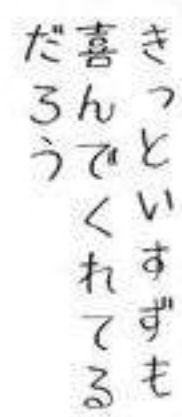 きっといすずも
喜んでくれてる
だろう